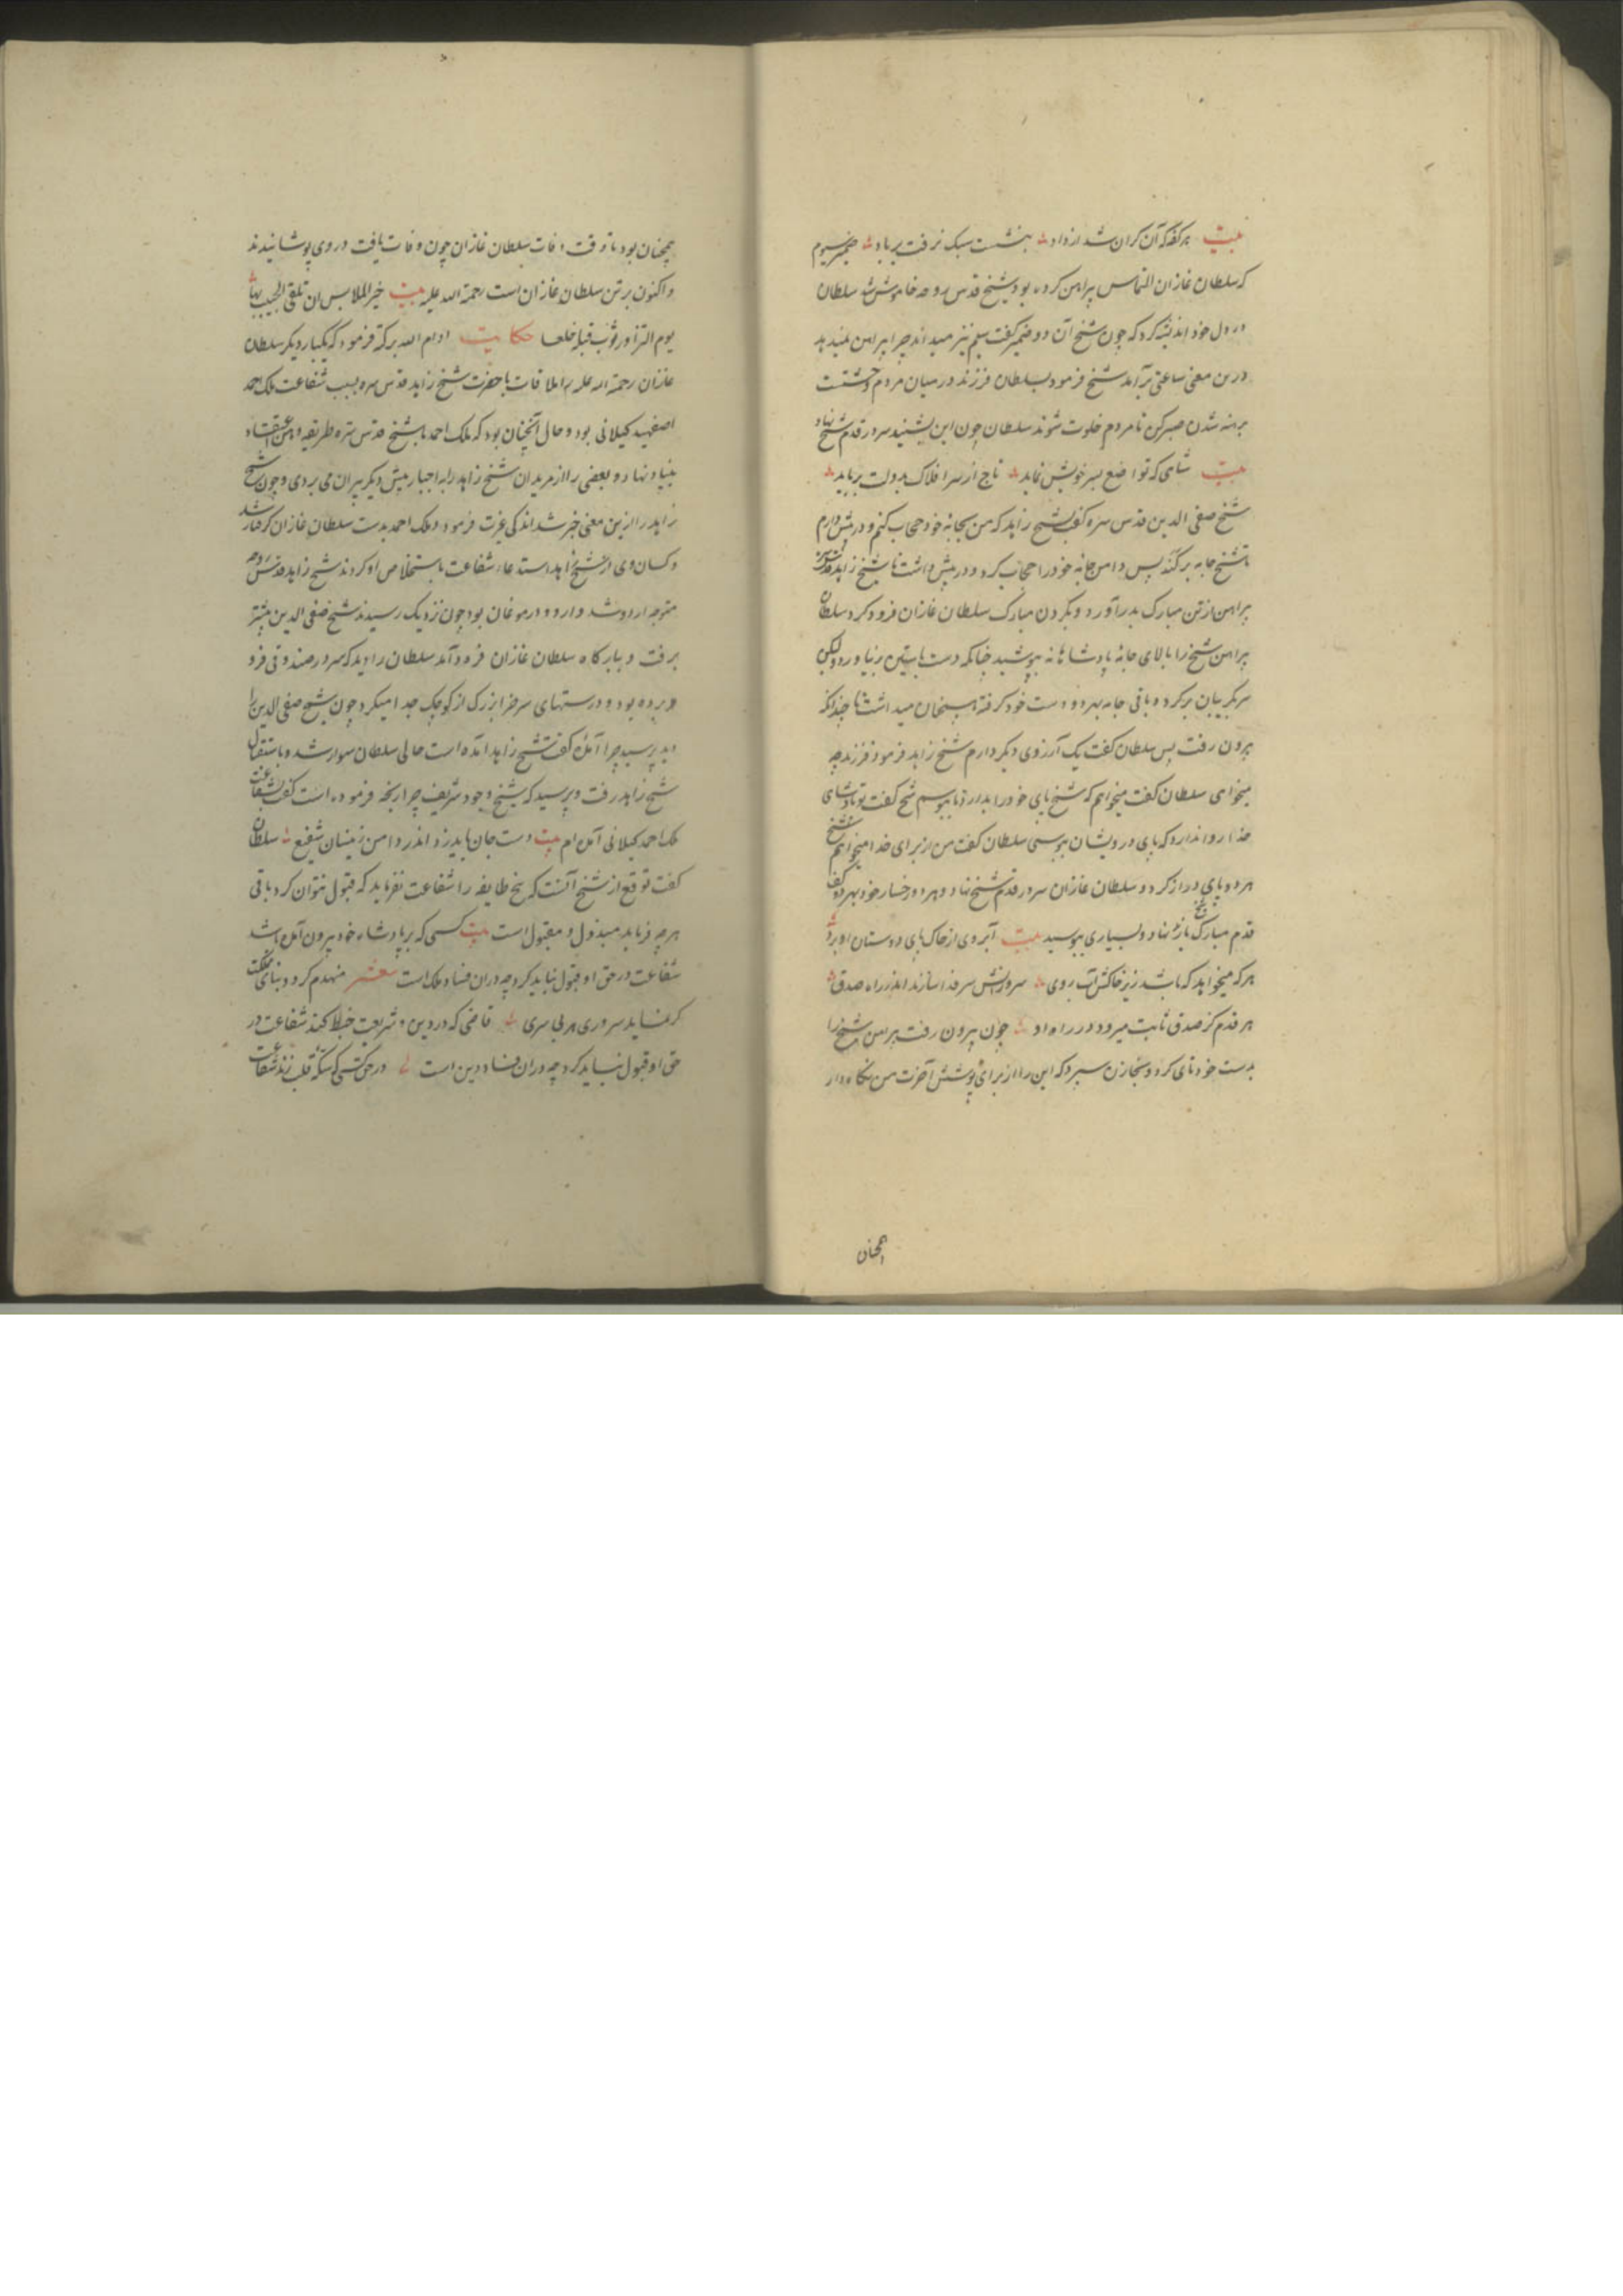 بیت هر کفه که آن کران شد از داد بنشست سبک نرفت بر باد ضمیر سیوم
که سلطان غازان التماس پیراهن کرده بود شیخ قدس روحه خاموش شد سلطان
در دل خود اندیشه کرد که چون شیخ آن دو ضمیر گفت سیم نیز میداند چرا پیراهن نمیدهد
درین معنی ساعتی برآمد شیخ فرمود سلطان فرزند در میان مردم وحشتست
برهنه شدن صبر کن تا مردم خلوت شوند سلطان چون این بشنید سر در قدم شیخ نهاد
بیت شاهی که تواضع بسر خویش نماید تاج از سر افلاک بدولت برباید
شیخ صفی الدین قدس سره گفت شیخ زاهد که من بجانه خود حجاب کنم و در پیش دارم
تا شیخ جامه برکند پس دامن جامه خود را حجاب کرد و در پیش داشت تا شیخ زاهد قدس سره
پیراهن از تن مبارک بدر آورد و بگردن مبارک سلطان غازان فرو کرد سلطان
پیراهن شیخ را بالای جامه پادشاهانه بپوشید چنانکه دست بآستین نیاورد ولیکن
سر بگریبان بر کرد و باقی جامه بهر دو دست خود گرفته همچنان میداشت تا چندانکه
بیرون رفت پس سلطان گفت یک آرزوی دیگر دارم شیخ زاهد فرمود فرزند چه
میخواهی سلطان گفت میخواهم که شیخ پای خود را بدارد تا ببوسم شیخ گفت تو پادشاهی
خدا روا ندارد که پای درویشان ببوسی سلطان گفت من از برای خدا میخواهم شیخ
هر دو پای دراز کرد و سلطان غازان سر در قدم شیخ نهاد و هر دو رخسار خود بهر دو کف
قدم مبارک شیخ باز نهاد و بسیاری ببوسید بیت آبروی از خاک پای دوستان او برد
هر که میخواهد که باشد زیر خاکش آب روی سرورانش سر فدا سازند اندر راه صدق
هر قدم کز صدق ثابت میرود در راه او چون بیرون رفت پیراهن شیخ را
بدست خود تای کرد و بخازن سپرد که این را از برای پوشش آخرت من نگاه دار
همچنان
همچنان بود تا وقت وفات سلطان غازان چون وفات یافت در وی پوشانیدند
و اکنون بر تن سلطان غازان است رحمة الله علیه بیت خیر الملابس ان تلقی الحبیب بها
یوم التزاور ثوب قبله خلعا حکایت ادام الله برکته فرمود که یکبار دیگر سلطان
غازان رحمة الله علیه را ملاقات با حضرت شیخ زاهد قدس سره بسبب شفاعت ملک احمد
اصفهبد گیلانی بود و حال آنچنان بود که ملک احمد با شیخ قدس سره طریقه وهن اعتقاد
بنیاد نهاد و بعضی را از مریدان شیخ زاهد را باجبار پیش دیگر پیران می بردی و چون شیخ
زاهد را ازین معنی خبر شد اندکی غیرت فرمود و ملک احمد بدست سلطان غازان گرفتار شد
و کسان وی از شیخ زاهد استدعاء شفاعت باستخلاص او کردند شیخ زاهد قدس روحه
متوجه اردو شد و اردو در موغان بود چون نزدیک رسیدند شیخ صفی الدین پیشتر
برفت و ببارگاه سلطان غازان فرود آمد سلطان را دید که سر در صندوقی فرو
برده بود و درستهای سرخ را بزرگ از کوچک جدا میکرد چون شیخ صفی الدین را
دید پرسید چرا آمدۀ گفت شیخ زاهد آمده است حالی سلطان سوار شد و باستقبال
شیخ زاهد رفت و پرسید که شیخ وجود شریف چرا رنجه فرموده است گفت بشفاعت
ملک احمد گیلانی آمده ام بیت دست جان باید زد اندر دامن زینسان شفیع سلطان
گفت توقع از شیخ آنست که پنج طایفه را شفاعت نفرماید که قبول نتوان کرد باقی
هر چه فرماید مبذول و مقبول است بیت کسی که بر پادشاه خود بیرون آمده باشد
شفاعت در حق او قبول نباید کرد چه دران فساد ملک است شعر منهدم گردد بنای مملکت
گر نماید سروری هر بی سری قاضی که در دین و شریعت خبط کند شفاعت در
حق او قبول نباید کرد چه دران فساد دین است در حق کسی که سکه قلب زند شفاعت